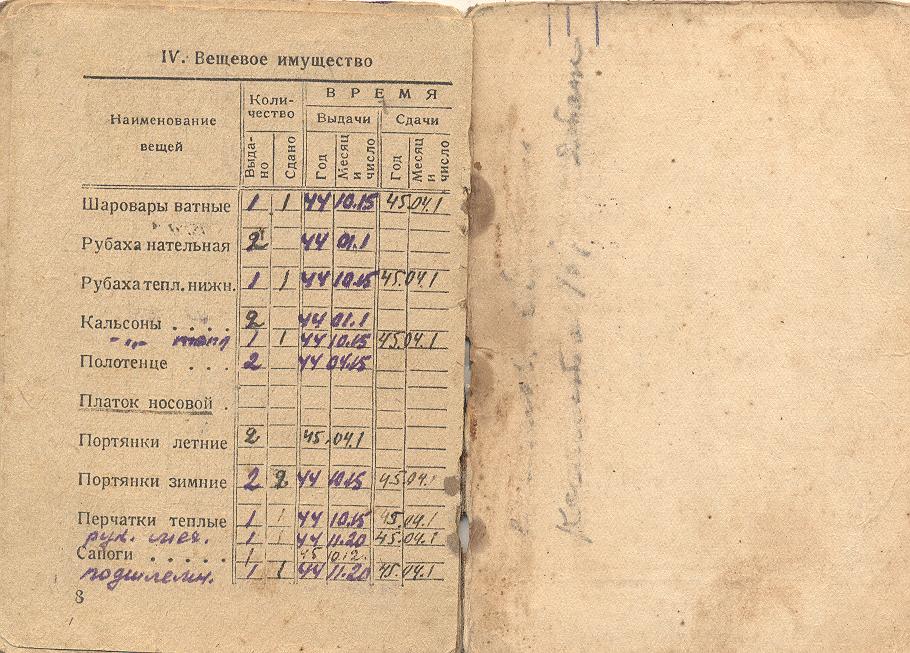 IV. Вещевое имущество
Наименование вещей
Коли-
чество
ВРЕМЯ
Выдачи Сдачи
Выда-
но
Сдано
Год
Месяц и число
Год
Месяц и число
Шаровары ватные 1 1 44 10.15 45.04.1
Рубаха нательная 2 44 01.1
Рубаха тепл. нижн. 1 1 44 10.15 45.04.1
Кальсоны . . . . 2 44 01.1
-„- тепл 1 1 44 10.15 45.04.1
Полотенце . . . 2 44 04.15
Платок носовой .
Портянки летние 2 45.04.1
Портянки зимние 2 2 44 10.15 45.04.1
Перчатки теплые 1 1 44 10.15 45.04.1
рук. мех. 1 1 44 11.20 45.04.1
Сапоги . . . . . 1 45
подшлемн. 1 1 44 11.20 45.04.1
8